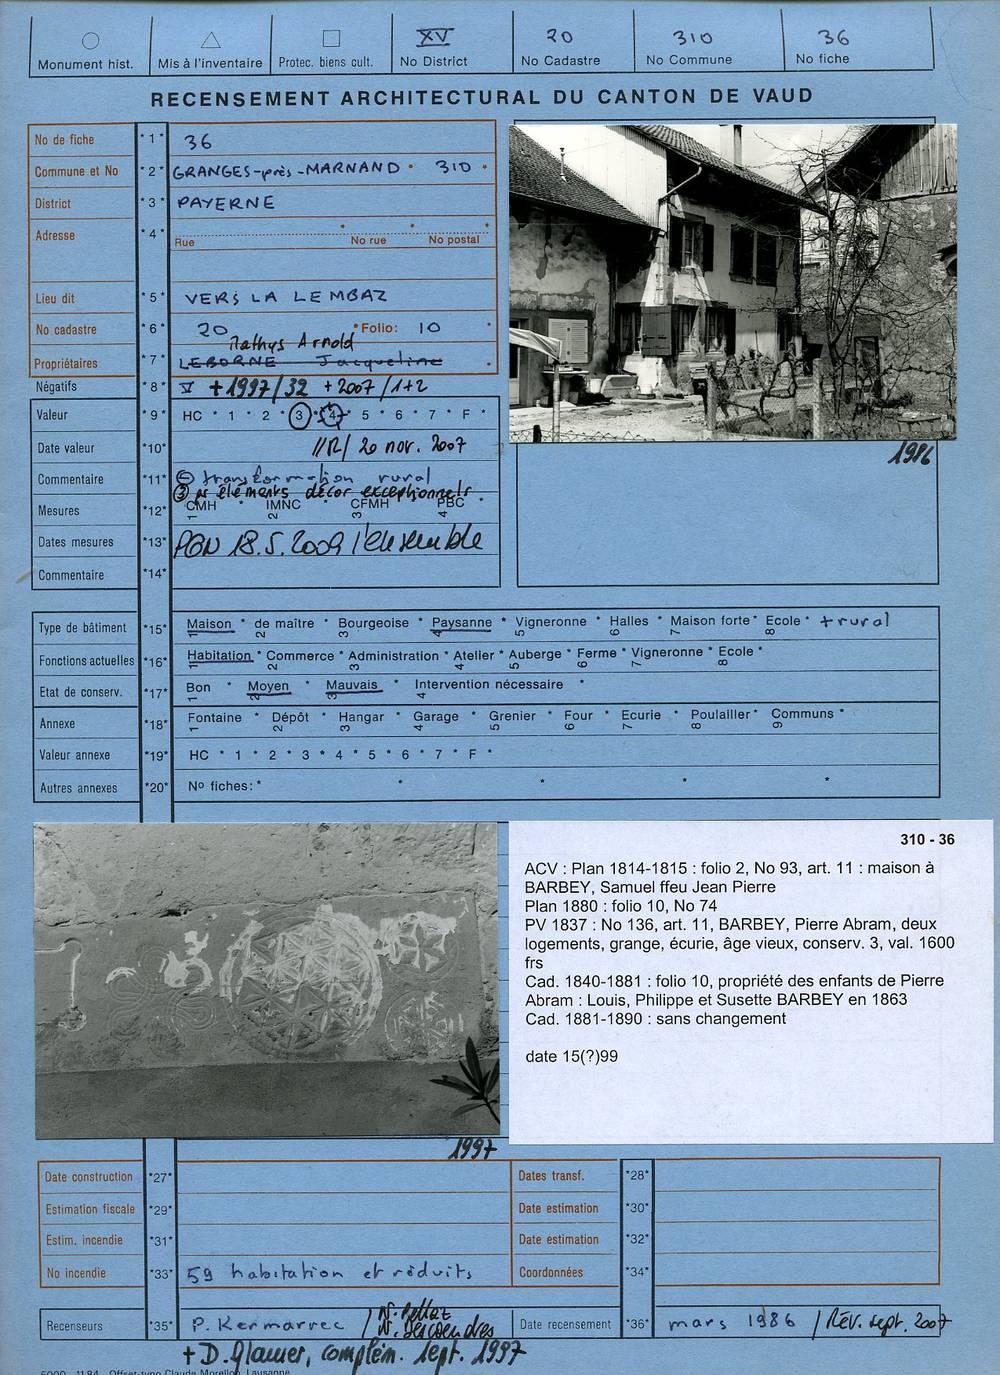 XV 20 310 36
Monument hist. Mis à l'inventaire Protec. biens cult. No District No Cadastre No Commune No fiche
RECENSEMENT ARCHITECTURAL DU CANTON DE VAUD
No de fiche *1* 36
Commune et No *2* GRANGES-près-MARNAND * 310 *
District *3* PAYERNE
Adresse *4*
Rue No rue No postal
Lieu dit *5* VERS LA LEMBAZ
No cadastre *6* 20 *Folio: 10 *
Mathys Arnold
Propriétaires *7* LEBORNE Jacqueline *
Négatifs *8* V +1997/32 +2007/1+2
Valeur *9* HC * 1 * 2 * 3 * 4 * 5 * 6 * 7 * F *
Date valeur *10* 20 nov. 2007
1986
Commentaire *11* transformation rural
③ ps éléments décor exceptionnels.
Mesures *12* CMH * IMNC * CFMH * PBC *
1 2 3 4
Dates mesures *13* PGN 18.5.2009 l'ensemble
Commentaire *14*
Type de bâtiment *15* Maison * de maître * Bourgeoise * Paysanne * Vigneronne * Halles * Maison forte * Ecole * + rural
1 2 3 4 5 6 7 8
Fonctions actuelles *16* Habitation * Commerce * Administration * Atelier * Auberge * Ferme * Vigneronne * Ecole *
1 2 3 4 5 6 7 8
Etat de conserv. *17* Bon * Moyen * Mauvais * Intervention nécessaire *
1 2 3 4
Annexe *18* Fontaine * Dépôt * Hangar * Garage * Grenier * Four * Ecurie * Poulailler * Communs *
1 2 3 4 5 6 7 8 9
Valeur annexe *19* HC * 1 * 2 * 3 * 4 * 5 * 6 * 7 * F *
Autres annexes *20* No fiches: * * * * *
310 - 36
ACV : Plan 1814-1815 : folio 2, No 93, art. 11 : maison à
BARBEY, Samuel ffeu Jean Pierre
Plan 1880 : folio 10, No 74
PV 1837 : No 136, art. 11, BARBEY, Pierre Abram, deux
logements, grange, écurie, âge vieux, conserv. 3, val. 1600
frs
Cad. 1840-1881 : folio 10, propriété des enfants de Pierre
Abram : Louis, Philippe et Susette BARBEY en 1863
Cad. 1881-1890 : sans changement
date 15(?)99
1997
Date construction *27* Dates transf. *28*
Estimation fiscale *29* Date estimation *30*
Estim. incendie *31* Date estimation *32*
No incendie *33* 59 habitation et réduits Coordonnées *34*
Recenseurs *35* P. Kermarrec / N. Pellaz
N. Descoendres
Date recensement *36* mars 1986 / Rév. sept. 2007
+ D. Glauser, complém. sept. 1997
5000 - 11.84 Offset-typo Claude Morellon, Lausanne